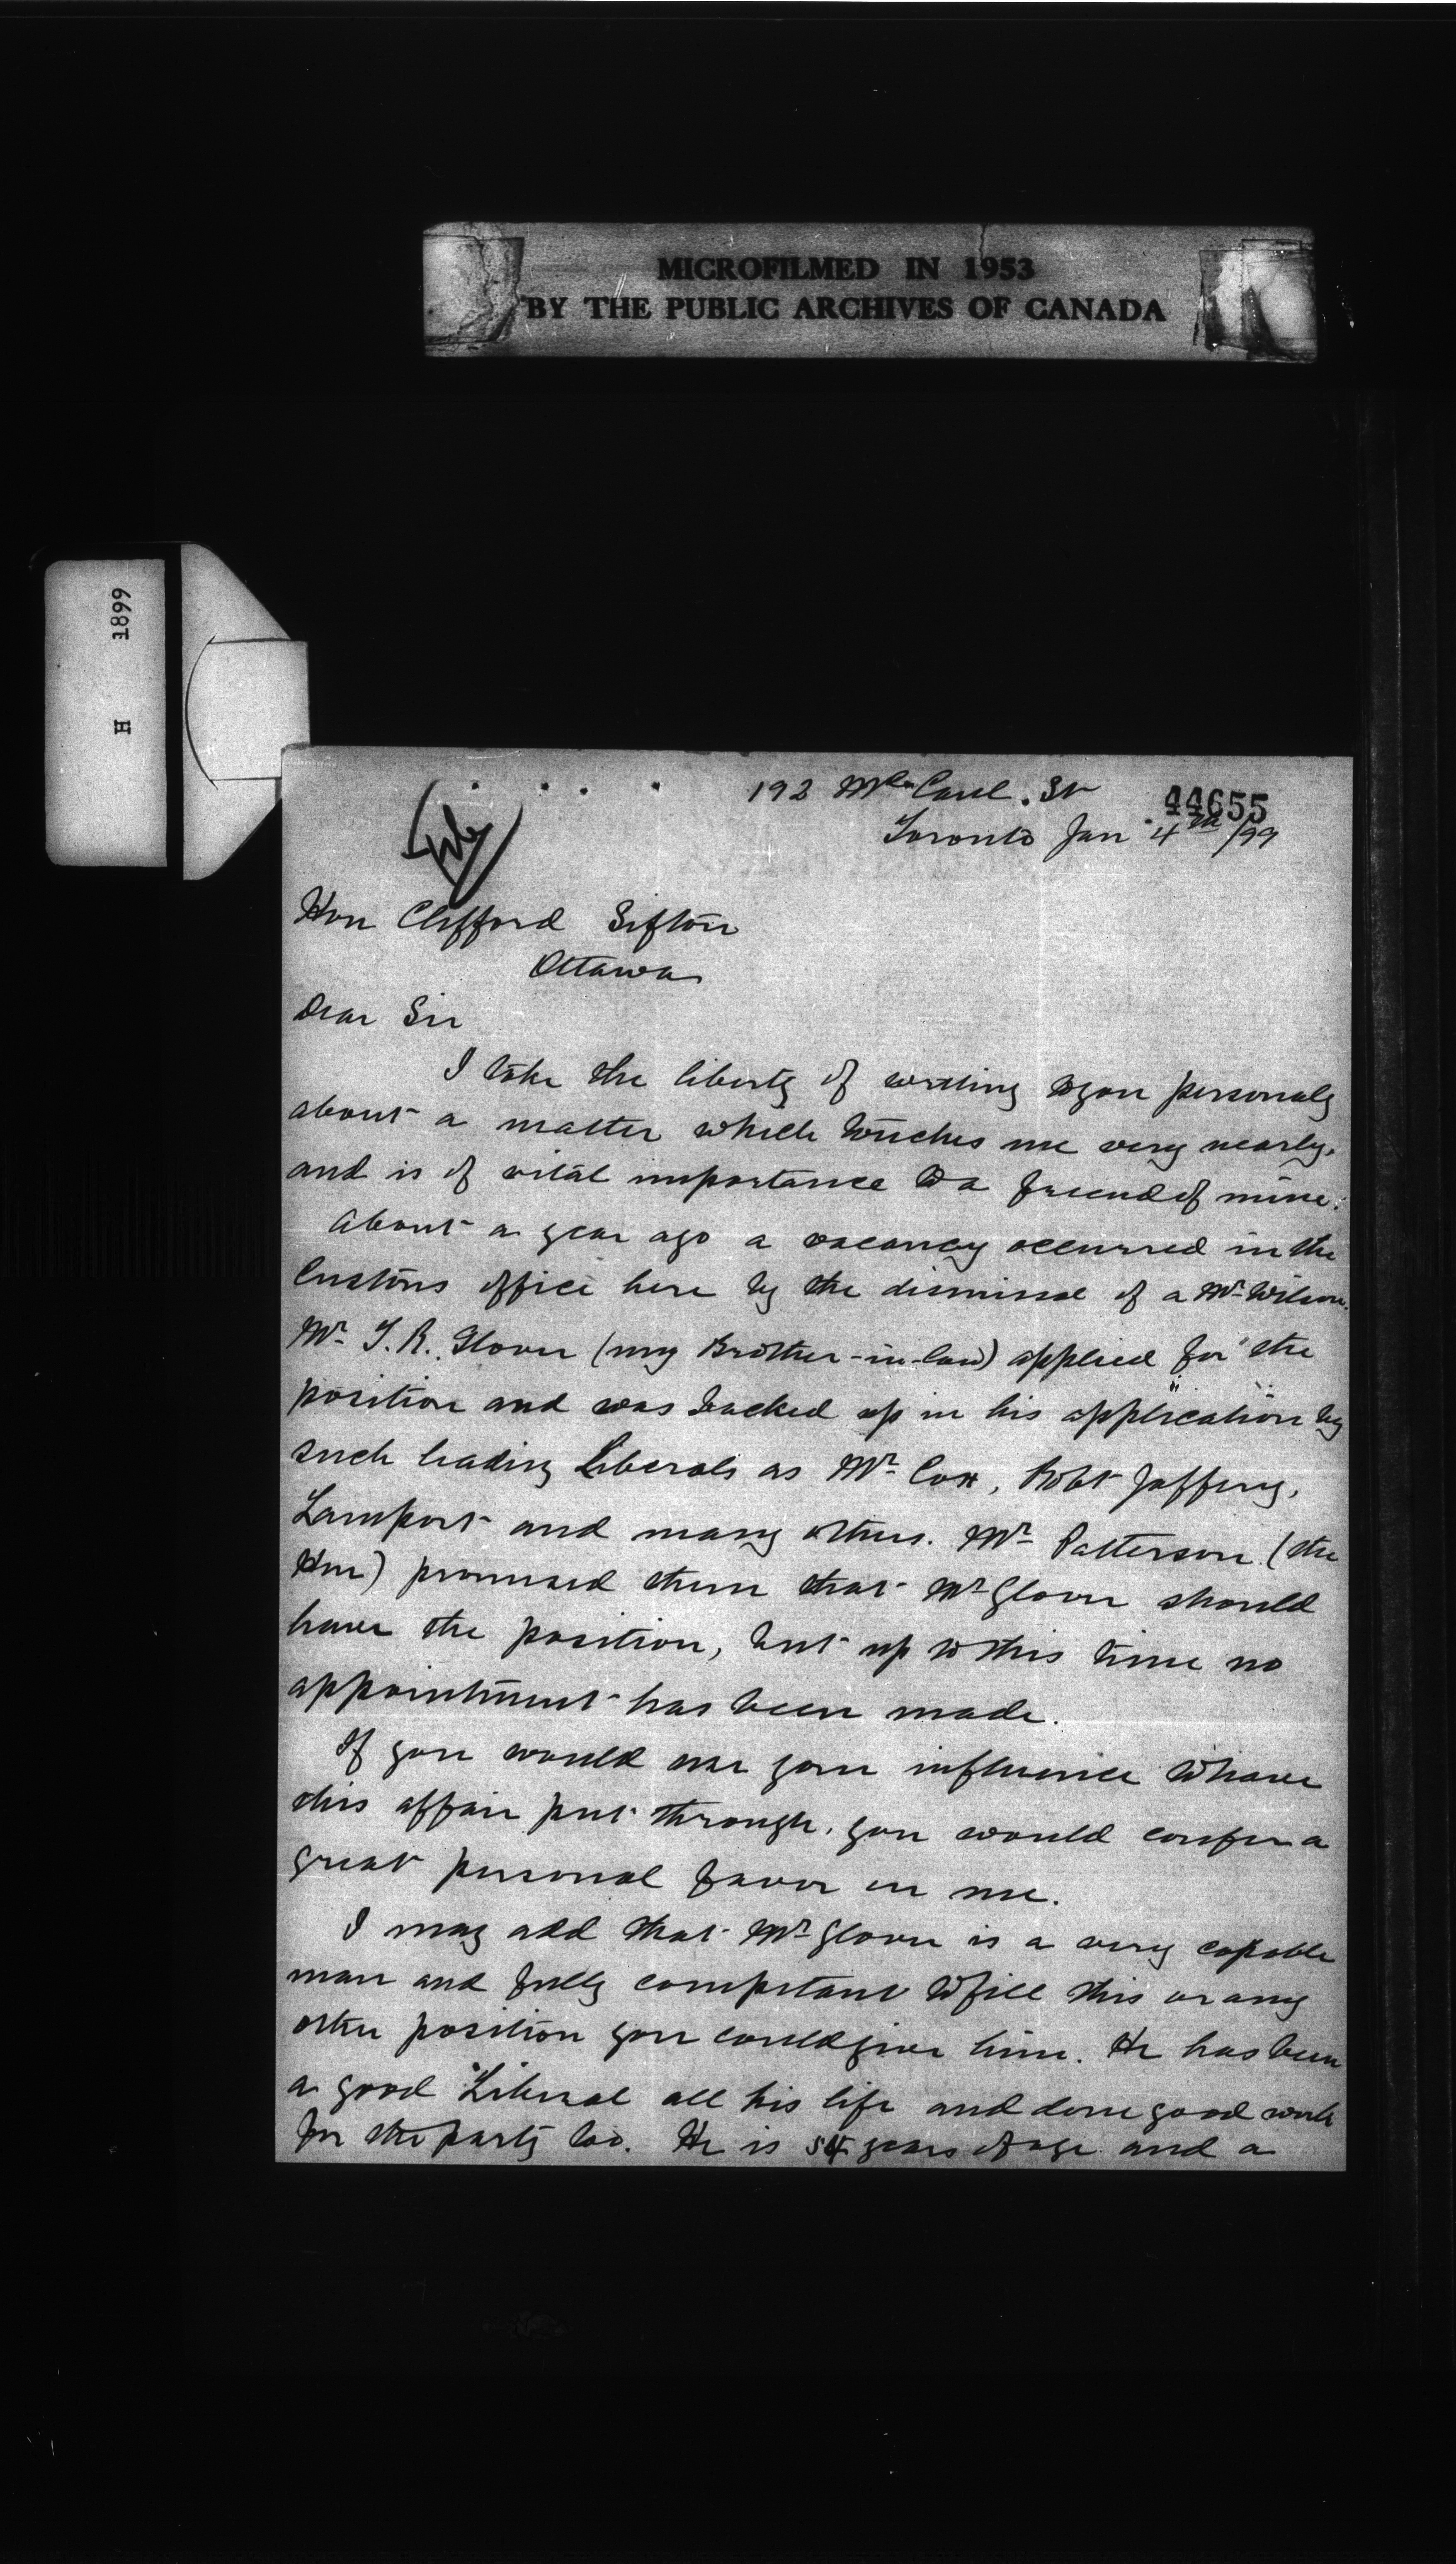 MICROFILMED IN 1953
BY THE PUBLIC ARCHIVES OF CANADA
H 1899
192 McCaul. St
44655
Toronto Jan 4th/99
Hon Clifford Sifton
Ottawa
Dear Sir
I take the liberty of writing to you personaly
about a matter which touches me very nearly,
and is of vital importance to a friend of mine.
About a year ago a vacancy occurred in the
Customs office here by the dismissal of a Mr Wilson.
Mr T. R. Glover (my Brother-in-law) applied for the
position and was backed up in his application by
such leading Liberals as Mr Cox, Robt Jaffery,
Lamport and many others. Mr Patterson (the
Hon) promised them that Mr Glover should
have the position, but up to this time no
appointment has been made.
If you would use your influence to have
this affair put through, you would confer a
great personal favor on me.
I may add that Mr Glover is a very capable
man and fully competant to fill this or any
other position you could give him. He has been
a good Liberal all his life and done good work
for the party too. He is 54 years of age and a